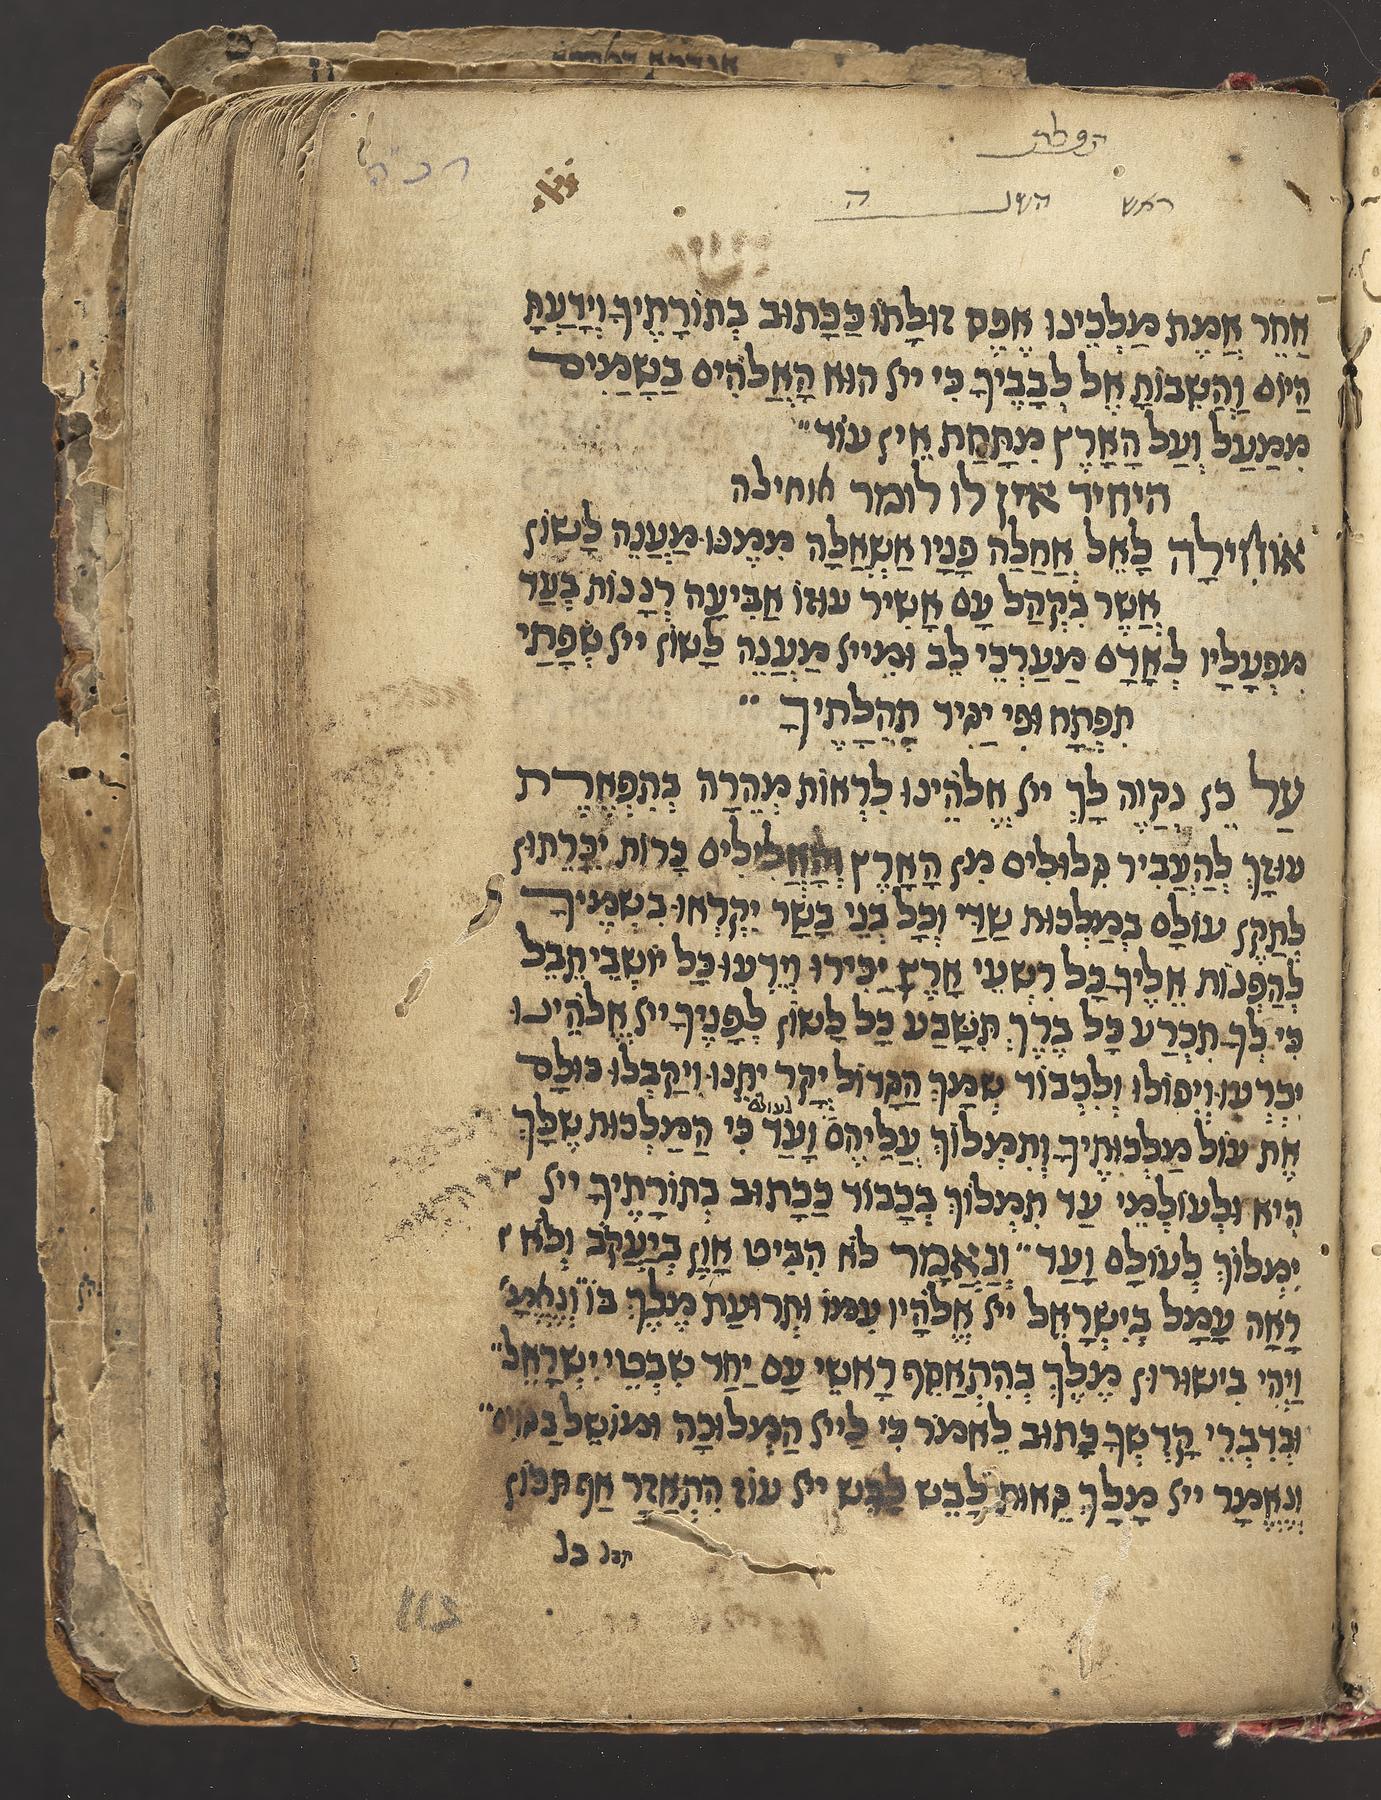 תפלת
ראש השנה
אַחֵר אֱמֶת מַלְכֵּינוּ אֶפֶס זוּלָתוֹ כַּכָּתוּב בְּתוֹרָתֶיךָ וְיָדַעְתָּ
הַיּוֹם וַהֲשֵׁבוֹתָ אֶל לְבָבֶיךָ כִּי ייי הוּא הָאֱלֹהִים בַּשָּׁמַיִם
מִמַּעַל וְעַל הָאָרֶץ מִתָּחַת אֵין עוֹד"
היחיד אין לו לומר אוחילה
אוֹחִילָה לָאֵל אֲחַלֶּה פָּנָיו אֶשְׁאֲלָה מִמֶּנּוּ מַעֲנֵה לָשׁוֹן
אֲשֶׁר בִּקְהַל עָם אָשִׁיר עוּזּוֹ אַבִּיעָה רְנָנוֹת בְּעַד
מִפְעָלָיו לְאָדָם מַעַרְכֵי לֵב וּמִייי מַעֲנֵה לָשׁוֹן ייי שְׂפָתַי
תִּפְתָּח וּפִי יַגִּיד תְּהִלָּתֶיךָ "
עַל כֵּן נְקַוֶּה לָּךְ ייי אֱלֹהֵינוּ לִרְאוֹת מְהֵרָה בְּתִפְאֶרֶת
עוּזָּךְ לְהַעֲבִיר גִּלּוּלִים מִן הָאָרֶץ וְהָאֱלִילִים כָּרוֹת יִכָּרֵתוּן
לְתַקֵּן עוֹלָם בְּמַלְכוּת שַׁדַּי וְכָל בְּנֵי בָשָׂר יִקְרְאוּ בִשְׁמֶיךָ
לְהַפְנוֹת אֵלֶיךָ כָּל רִשְׁעֵי אָרֶץ יַכִּירוּ וְיֵדְעוּ כָּל יוֹשְׁבֵי תֵבֵל
כִּי לְךָ תִּכְרַע כָּל בֶּרֶךְ תִּשָּׁבַע כָּל לָשׁוֹן לְפָנֶיךָ ייי אֱלֹהֵינוּ
יִכְרְעוּ וְיִפּוֹלוּ וְלִכְבוֹד שְׁמָךְ הַגָּדוֹל יְקָר יִתְּנוּ וִיקַבְּלוּ כוּלָּם
אֶת עוֹל מַלְכוּתֶיךָ וְתִמְלוֹךְ עֲלֵיהֶם לעולם וָעֶד כִּי הַמַּלְכוּת שֶׁלָּךְ
הִיא וּלְעוֹלְמֵי עַד תִּמְלוֹךְ בְּכָבוֹד כַּכָּתוּב בְּתוֹרָתֶיךָ ייי
יִמְלוֹךְ לְעוֹלָם וָעֶד" וְנֶאֱמָר לֹא הִבִּיט אָוֶן בְּיַעֲקֹב וְלֹא
רָאָה עָמָל בְּיִשְׂרָאֵל ייי אֱלֹהָיו עִמּוֹ וּתְרוּעַת מֶלֶךְ בּוֹ" וְנֶאֱמַ'
וַיְהִי בִישׁוּרוּן מֶלֶךְ בְּהִתְאַסֵּף רָאשֵׁי עָם יַחַד שִׁבְטֵי יִשְׂרָאֵל"
וּבְדִבְרֵי קָדְשְׁךָ כָּתוּב לֵאמֹר כִּי לַייי הַמְּלוּכָה וּמוֹשֵׁל בַּגּוֹיִם"
וְנֶאֱמָר ייי מָלָךְ גֵּאוּת לָבֵשׁ לָבֵשׁ ייי עוֹז הִתְאַזָּר אַף תִּכּוֹן
תבל בל
113